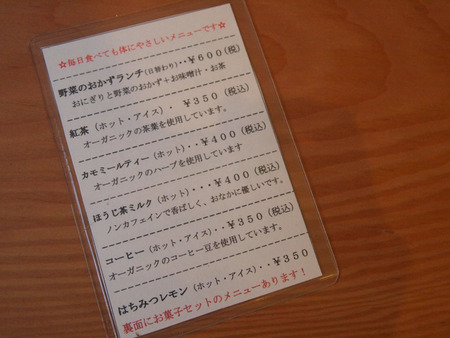 ☆毎日食べても体にやさしいメニューです☆
野菜のおかずランチ(日替わり)・・￥600(税込)
おにぎりと野菜のおかず＋お味噌汁・お茶
紅茶 (ホット・アイス)・￥350(税込)
オーガニックの茶葉を使用しています。
カモミールティー (ホット)・・￥400(税込)
オーガニックのハーブを使用しています
ほうじ茶ミルク (ホット)・・・￥400(税込)
ノンカフェインで香ばしく、おなかに優しいです。
コーヒー (ホット・アイス)・・￥350(税込)
オーガニックのコーヒー豆を使用しています。
はちみつレモン (ホット・アイス)・・￥350
裏面にお菓子セットのメニューあります！